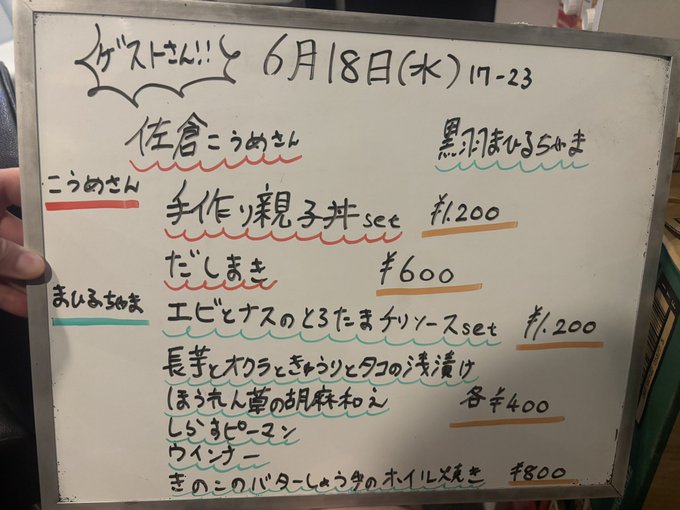 ゲストさん!!
6月18日(水) 17-23
佐倉こうめさん
黒羽まひるちゃま
こうめさん
手作り親子丼set ¥1.200
だしまき ¥600
まひるちゃま
エビとナスのとろたまチリソースset ¥1.200
長芋とオクラときゅうりとタコの浅漬け
ほうれん草の胡麻和え 各¥400
しらすピーマン
ウインナー
きのこのバターしょうゆのホイル焼き ¥800